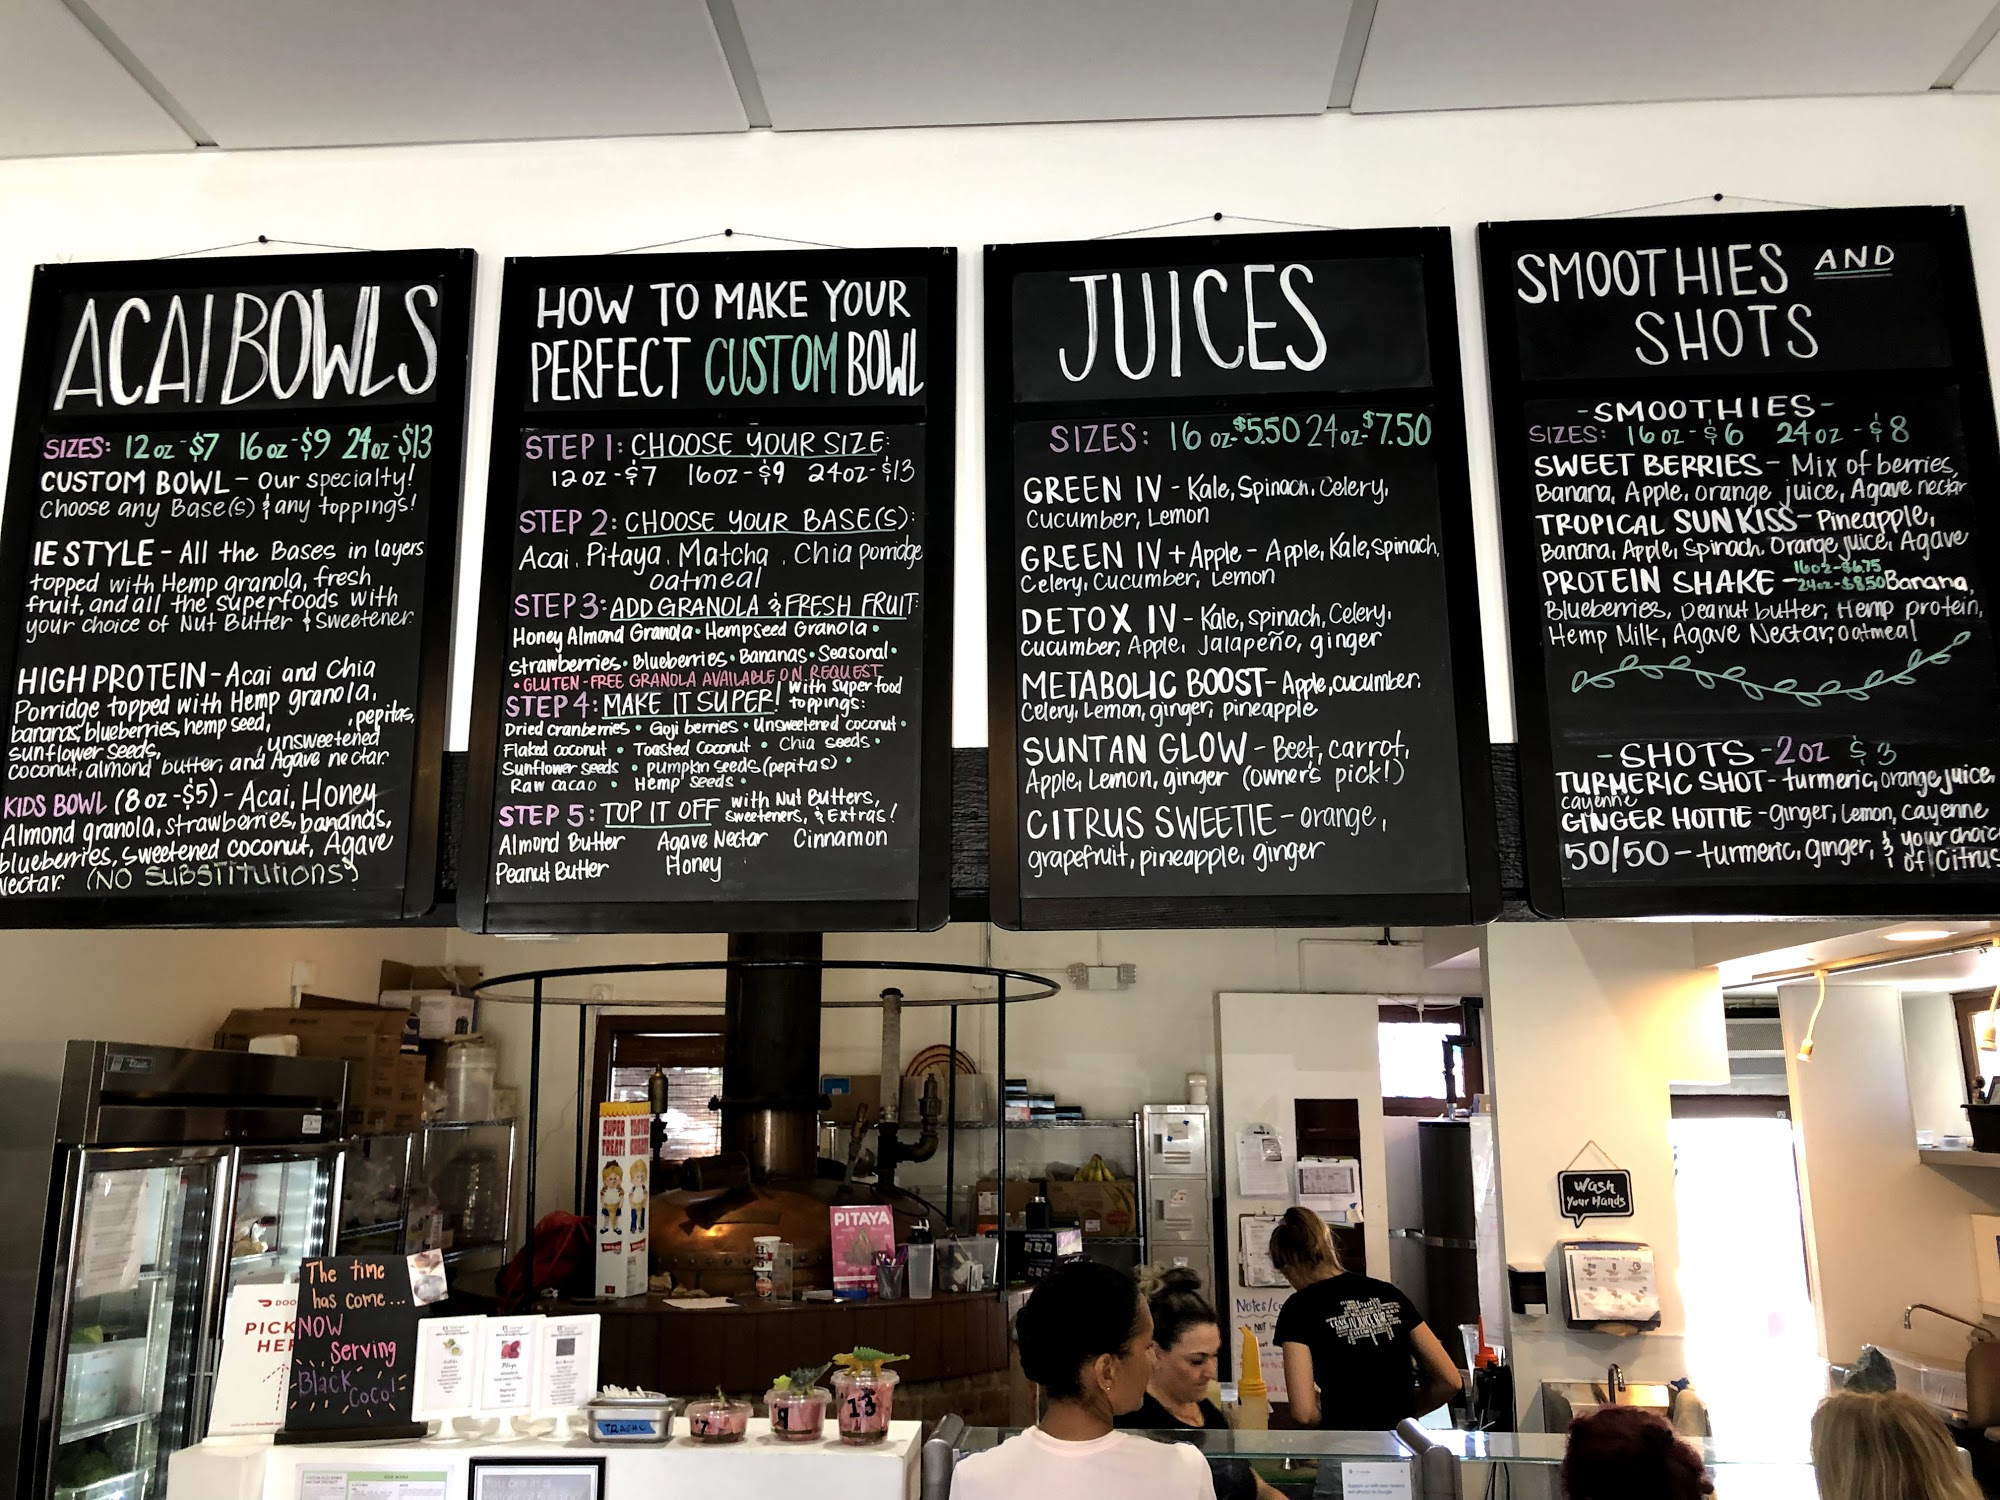 ACAI BOWLS
SIZES: 12oz-$7 16oz-$9 24oz-$13
CUSTOM BOWL - our specialty!
Choose any Base(s) & any toppings!
IE STYLE - All the Bases in layers
topped with Hemp granola, fresh
fruit, and all the superfoods with
your choice of Nut Butter & Sweetener.
HIGH PROTEIN - Acai and Chia
Porridge topped with Hemp granola,
bananas, blueberries, hemp seed, , pepitas,
sunflower seeds, , unsweetened
coconut, almond butter, and Agave nectar.
KIDS BOWL (8oz-$5) - Acai, Honey
Almond granola, strawberries, bananas,
blueberries, sweetened coconut, Agave
Nectar. (NO SUBSTITUTIONS)
HOW TO MAKE YOUR
PERFECT CUSTOM BOWL
STEP 1: CHOOSE YOUR SIZE:
12oz-$7 16oz-$9 24oz-$13
STEP 2: CHOOSE YOUR BASE(S):
Acai, Pitaya, Matcha, Chia porridge
oatmeal
STEP 3: ADD GRANOLA & FRESH FRUIT:
Honey Almond Granola • Hempseed Granola •
Strawberries • Blueberries • Bananas • Seasonal •
• GLUTEN-FREE GRANOLA AVAILABLE ON REQUEST
STEP 4: MAKE IT SUPER! with superfood
toppings:
Dried cranberries • Goji berries • Unsweetened coconut •
Flaked coconut • Toasted Coconut • Chia seeds •
Sunflower seeds • pumpkin seeds (pepitas) •
Raw cacao • Hemp seeds •
STEP 5: TOP IT OFF with Nut Butters,
sweeteners, & Extras!
Almond Butter Agave Nectar Cinnamon
Peanut Butter Honey
JUICES
SIZES: 16oz-$5.50 24oz-$7.50
GREEN IV - Kale, Spinach, Celery,
Cucumber, Lemon
GREEN IV + Apple - Apple, Kale, spinach,
Celery, Cucumber, Lemon
DETOX IV - Kale, spinach, Celery,
cucumber, Apple, Jalapeño, ginger
METABOLIC BOOST - Apple, cucumber,
Celery, Lemon, ginger, pineapple
SUNTAN GLOW - Beet, carrot,
Apple, Lemon, ginger (owner's pick!)
CITRUS SWEETIE - orange,
grapefruit, pineapple, ginger
SMOOTHIES AND
SHOTS
-SMOOTHIES-
SIZES: 16oz-$6 24oz-$8
SWEET BERRIES - Mix of berries,
Banana, Apple, orange juice, Agave nectar
TROPICAL SUNKISS - Pineapple,
Banana, Apple, Spinach, Orange juice, Agave
PROTEIN SHAKE - 16oz-$6.75
24oz-$8.50 Banana,
Blueberries, Peanut butter, Hemp protein,
Hemp Milk, Agave Nectar, oatmeal
-SHOTS-2oz $3
TURMERIC SHOT - turmeric, orange juice,
cayenne
GINGER HOTTIE - ginger, Lemon, cayenne
50/50 - turmeric, ginger, & your choice
of Citrus
SUPER
TREAT!
PITAYA
Wash
Your Hands
The time
has come...
NOW
serving
Black
Coco!
PICK
HER
TRASH
7
9
13
LOVE IV JUICE BAR